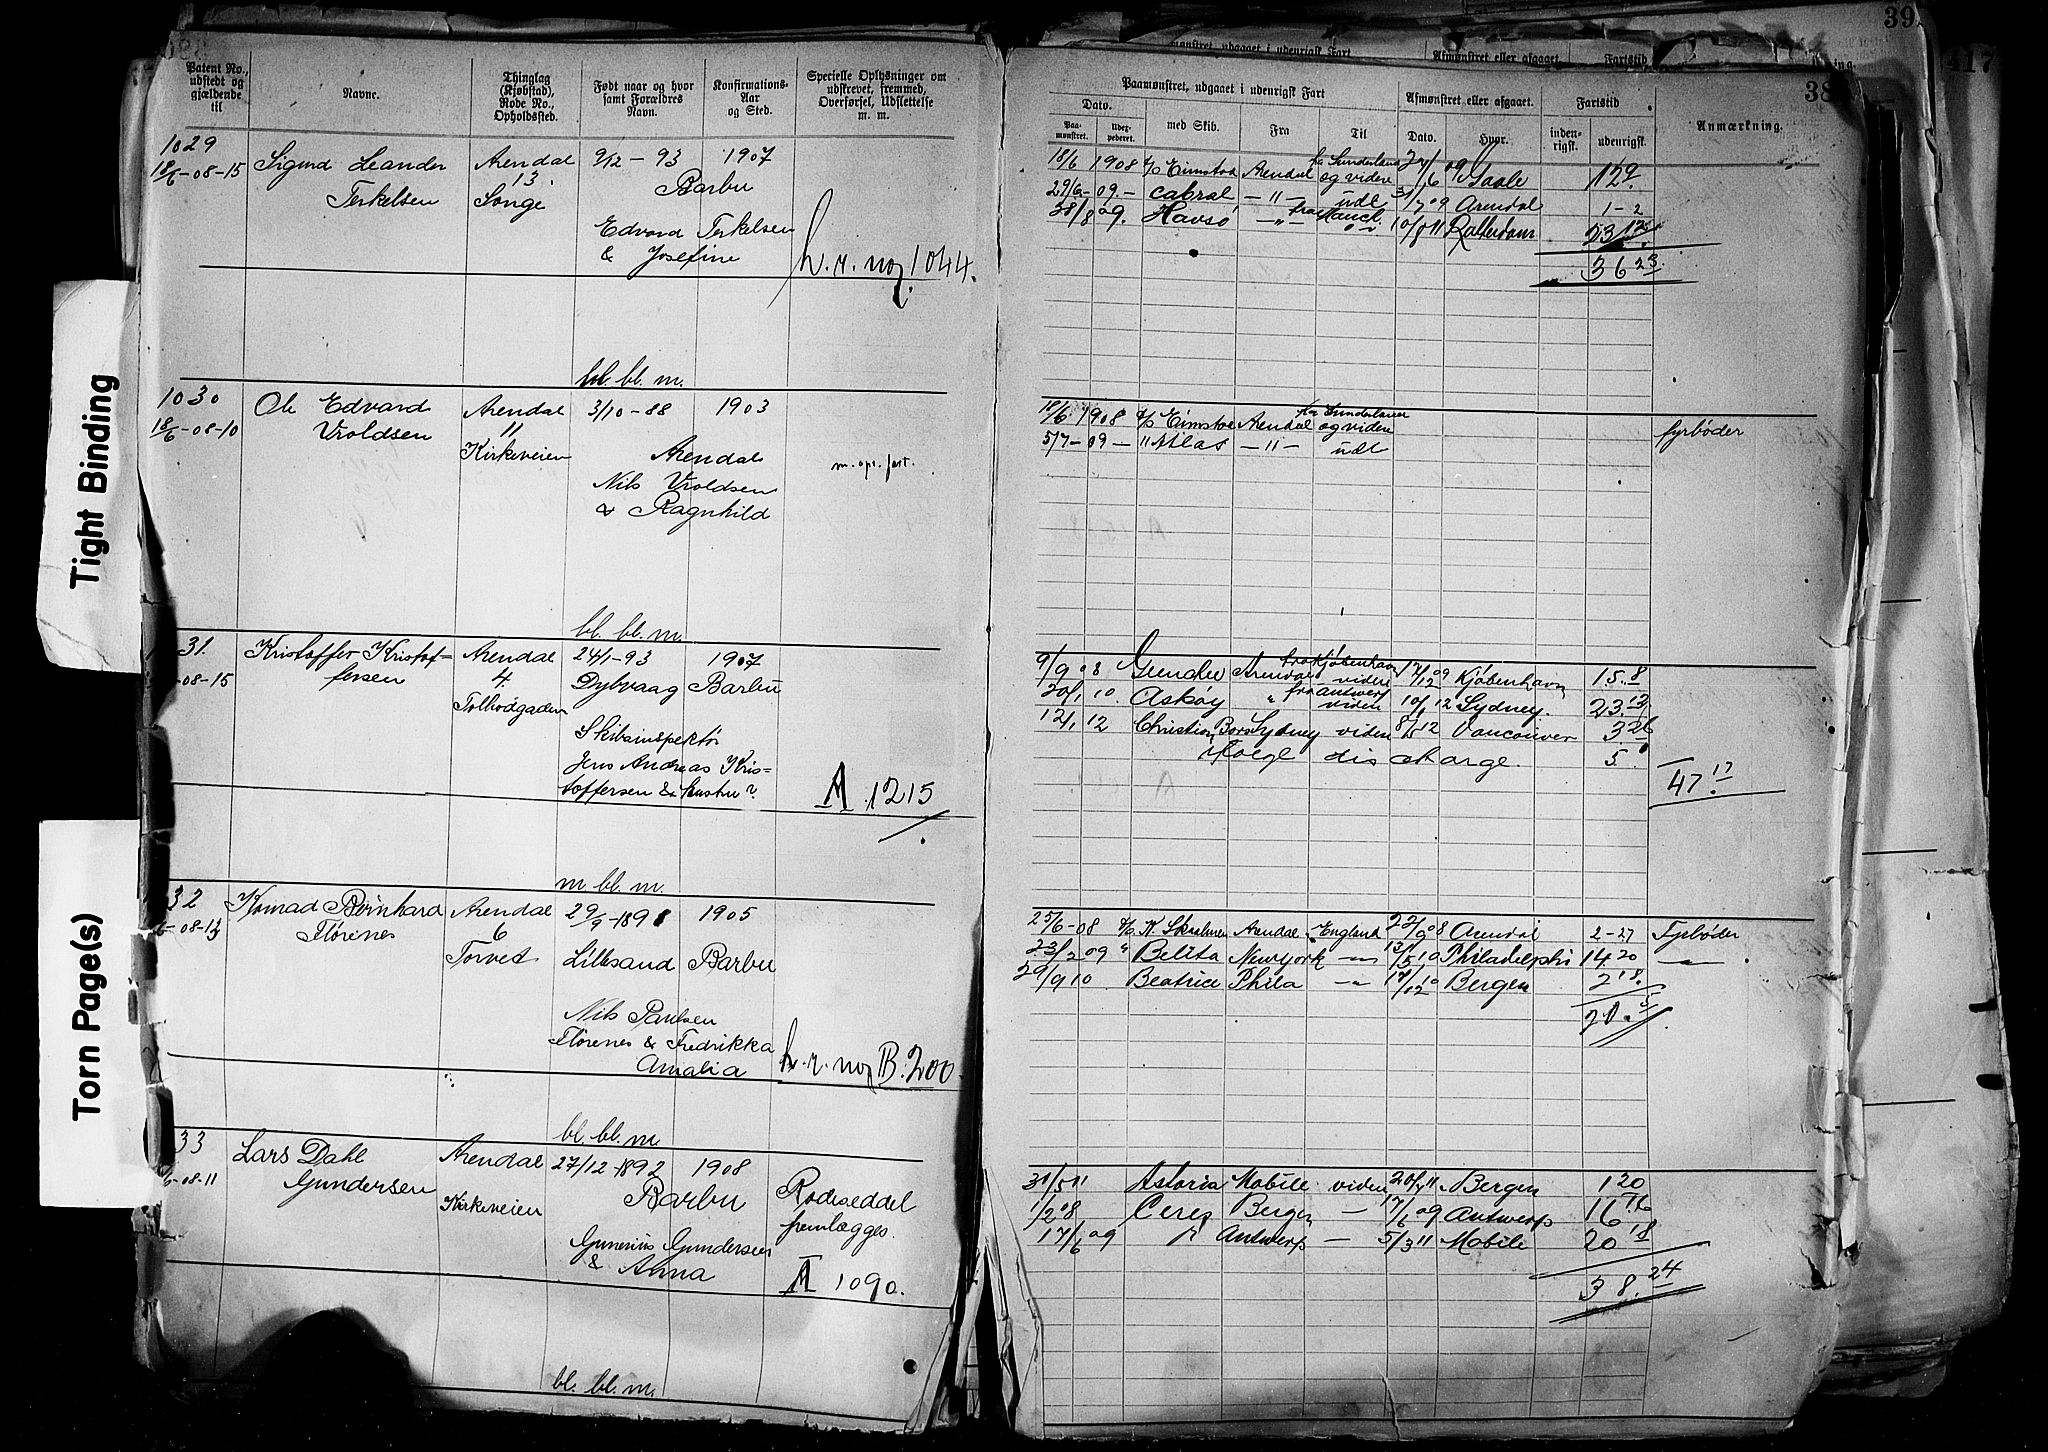 39
417
38
Tight Binding
Torn Page(s)
Patent No., udstedt og gjældende til
Navne.
Thinglag (Kjøbstad), Rode No., Opholdssted.
Født naar og hvor samt Forældres Navn.
Konfirmations- Aar og Sted.
Specielle Oplysninger om udskrevet, fremmed, Overførsel, Udslettelse m. m.
Paamønstret, udgaaet i udenrigsk Fart
Afmønstret eller afgaaet.
Fartstid
Dato.
Paamønstret.
Udexpederet.
med Skib.
Fra
Til
Dato.
Hvor.
indenrigsk.
udenrigsk.
Anmærkning.
1029
18/6-08-15
Sigurd Leander
Terkelsen
Arendal
13
Songe
9/12 - 93
1907
Barbu
Edvard Terkelsen
& Josefine
h. r. no 1044.
bl. bl. m.
18/6 1908 Eimstad Arendal Sunderland og videre
29/6 - 09. - Cabral - " - udl 7 09 Arendal 1-2
28/8 09. Havsö - " - 10/8 11 Rotterdam
36 23
1030
18/6-08-10
Ole Edvard
Vroldsen
Arendal
11
Kirkeveien
3/10 - 88
1903
Arendal
Nils Vroldsen
& Ragnhild
bl. bl. m.
18/6 1908 Arendal og videre fyrbøder
5/7 - 09 - " Atlas - " - udl
31.
-08-15
Kristoffer Kristof=
fersen
Arendal
4
Tolbodgaden
24/1-93
1907
Dybvaag
Barbu
Skibsinspektør
Jens Andreas Kris=
toffersen & hustru ?
A 1215
m bl. m.
9/9 08 Arendal Kjøbenhavn videre 17/12 09 Kjøbenhavn 15.8
20/1 10. Askøy " fra Antwerp videre 10/1 12 Sydney. 23.
12/1 12 Christian Bors Sydney viden 8/5 12 Vancouver 3 26
discharge. 5
47 17
32
-08-13
Konrad Bernhard
Flørenes
Arendal
6
Torvet
29/9-1891
1905
Lillesand
Barbu
Nils Paulsen
Flørenes & Fredrikka
Amalia
h. r. no B. 200
bl. bl. m.
25/6-08 Arendal England 22/9 08 Arendal 2-27 Fyrbøder
23/2 09 " Belita Newyork - " - 13/5 10 Philadelphi 14.20 - " -
29/9 10 Beatrice Phila - " - 17/12 10 Bergen 2 18.
20.
33
6-08-11
Lars Dahl
Gundersen
Arendal
Kirkeveien
27/12-1892
1908
Barbu
Gunerius Gundersen
& Anna
Rodeseddel
fremlægges.
A 1090.
bl. bl. m.
31/5 11 Astoria Mobile viden 20/7 11 Bergen 1 20
1/2 08 Ceres Bergen - 17/6 09 Antwerp 16
17/6 09 Antwerp - 5/3 11 Mobile 20 18
38. 24